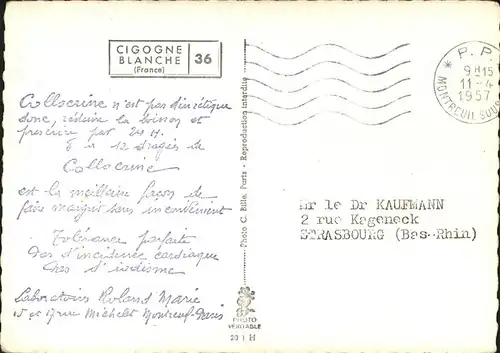 CIGOGNE
BLANCHE
(France)
36
P.P.
9H15
11-4
1957
* MONTREUIL SOUS
Collocrine n'est pas diurétique
donc, réduire la boisson et
prescrire par 24 H.
6 à 12 dragées de
Collocrine
est la meilleure façon de
faire maigrir sans inconvénient
Tolérance parfaite
Pas d'incidence cardiaque
Pas d'iodisme
Laboratoires Roland Marie
15 et 17 rue Michelet Montreuil Paris
Photo C. Bille, Paris - Reproduction interdite
PHOTO
VERITABLE
20 1 H
Mr le Dr KAUFMANN
2 rue Kageneck
STRASBOURG (Bas-Rhin)